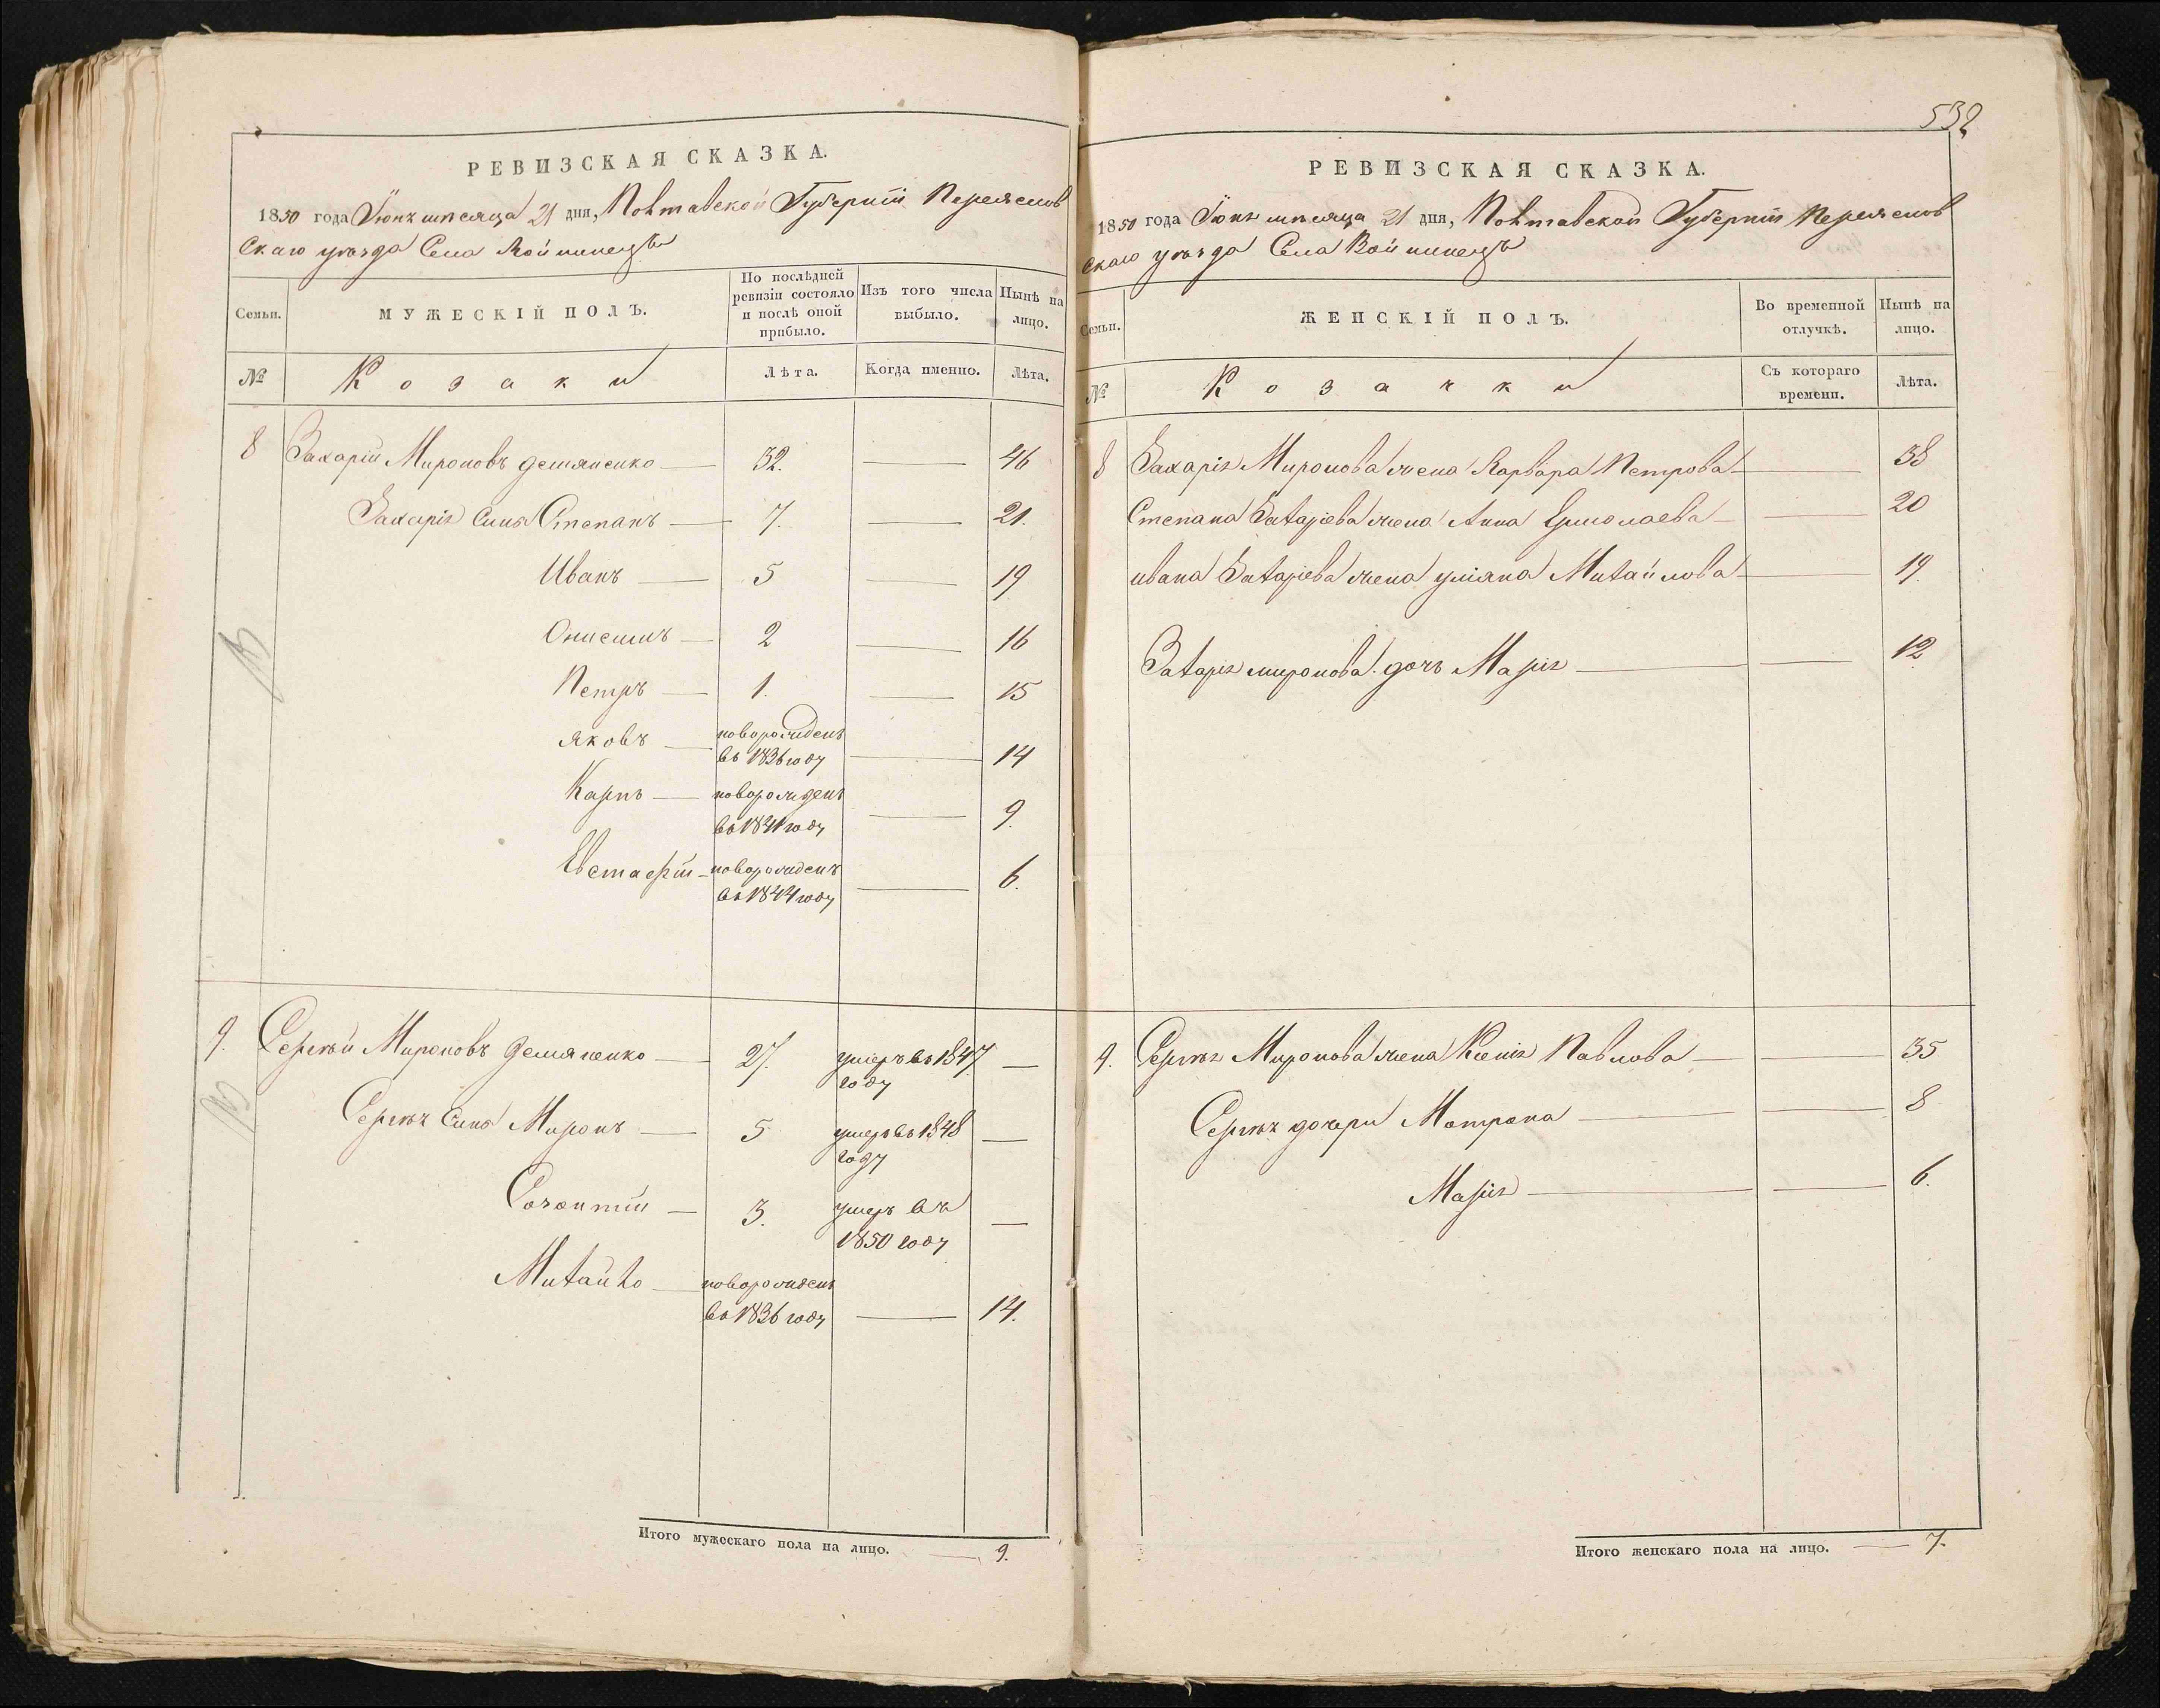 РЕВИЗСКАЯ СКАЗКА.
1850 года Іюня мѣсяца 21 дня, Полтавской Губерніи Переяслов
скаго уѣзда Села Войнинецъ
Семьи.
МУЖЕСКІЙ ПОЛЪ.
По послѣдней ревизіи состояло и послѣ оной прибыло.
Изъ того числа выбыло.
Нынѣ на лицо.
№
Козаки
Лѣта.
Когда именно.
Лѣта.
8 Захарій Мироновъ Демяненко — 32. — 46
Захарія Сынъ Степанъ — 7. — 21.
Иванъ — 5 — 19
Онисимъ — 2 — 16
Петръ — 1. — 15
Яковъ — новорожденъ
въ 1836 году — 14
Карпъ — новорожденъ
въ 1841 году — 9.
Евстафій — новорожденъ
въ 1844 году — 6.
9. Сергѣй Мироновъ Демяненко — 27. умеръ въ 1847 —
году
Сергѣя Сынъ Миронъ — 5 умеръ въ 1848 —
году
Созонтій — 3. умеръ въ —
1850 году
Михайло — новорожденъ
въ 1836 году — 14.
Итого мужескаго пола на лицо. — 9.
532
РЕВИЗСКАЯ СКАЗКА.
1850 года Іюня мѣсяца 21 дня, Полтавской Губерніи Переяслов
скаго уѣзда Села Войнинецъ
Семьи.
ЖЕНСКІЙ ПОЛЪ.
Во временной отлучкѣ.
Нынѣ на лицо.
№
Козачки
Съ котораго времени.
Лѣта.
8 Захарія Миронова жена Варвара Петрова — 38
Степана Захаріева жена Анна Ермолаева — 20
ивана Захаріева жена уліяна Михайлова — 19.
Захарія миронова дочь Марія — 12
9. Сергѣя Миронова жена Ксенія Павлова — 35
Сергѣя дочери Мотрона — 8
Марія — 6.
Итого женскаго пола на лицо. — 7.